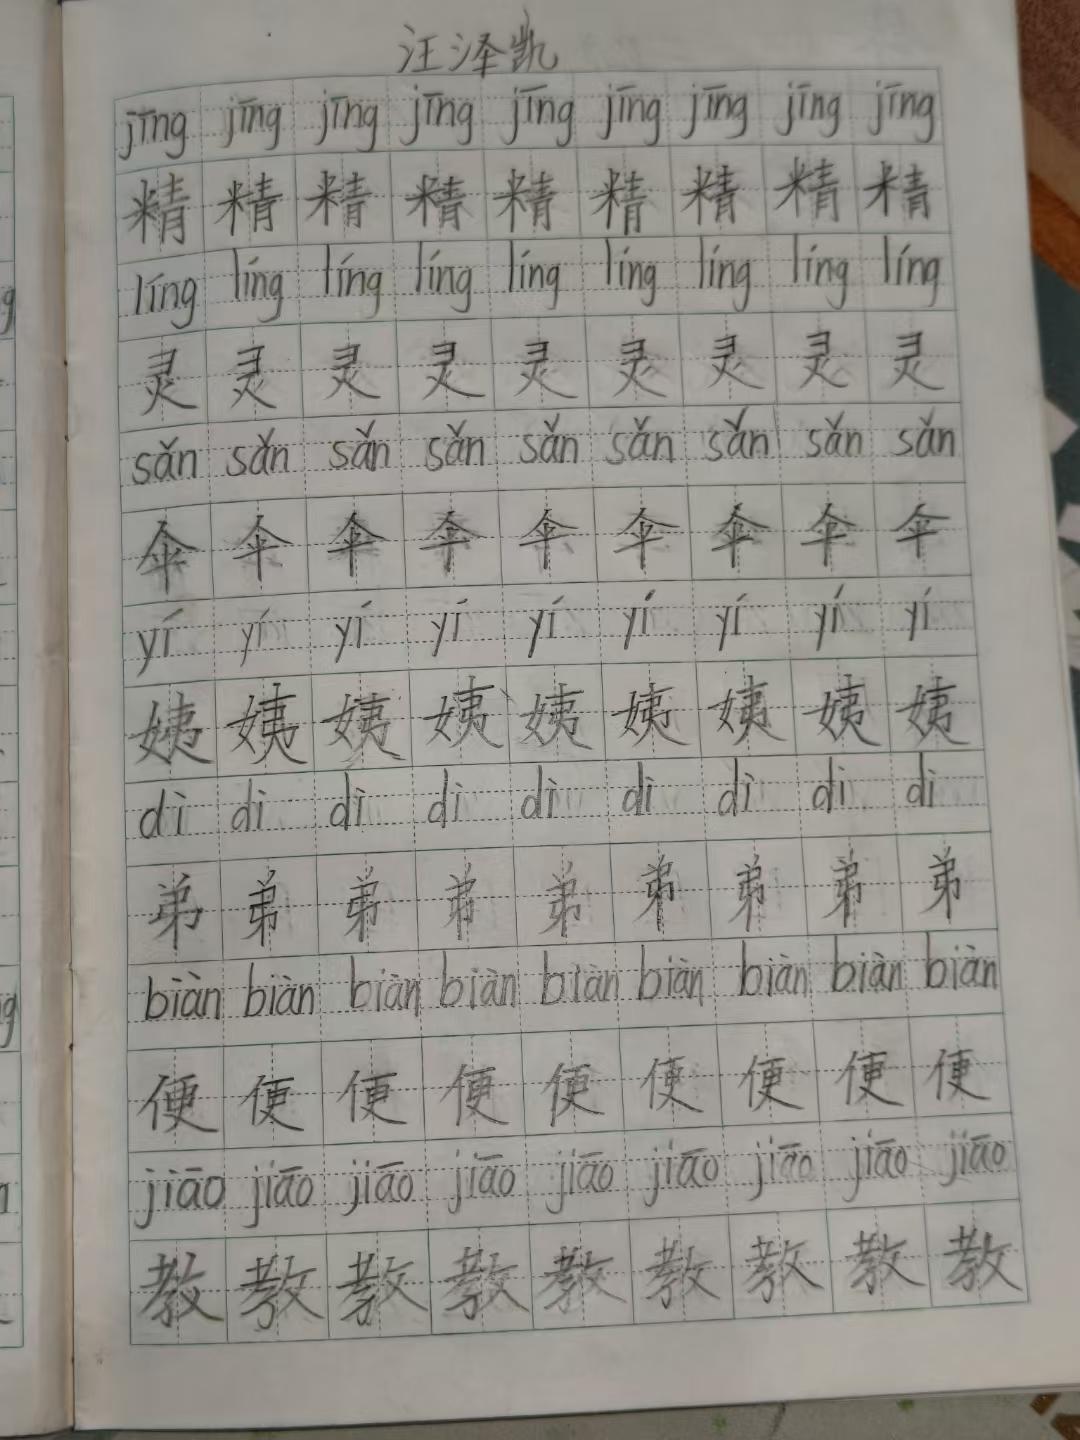 汪泽凯
jīng jīng jīng jīng jīng jīng jīng jīng jīng
精 精 精 精 精 精 精 精 精
líng líng líng líng líng líng líng líng líng
灵 灵 灵 灵 灵 灵 灵 灵 灵
sǎn sǎn sǎn sǎn sǎn sǎn sǎn sǎn sǎn
伞 伞 伞 伞 伞 伞 伞 伞 伞
yí yí yí yí yí yí yí yí yí
姨 姨 姨 姨 姨 姨 姨 姨 姨
dì dì dì dì dì dì dì dì dì
弟 弟 弟 弟 弟 弟 弟 弟 弟
biàn biàn biàn biàn biàn biàn biàn biàn biàn
便 便 便 便 便 便 便 便 便
jiāo jiāo jiāo jiāo jiāo jiāo jiāo jiāo jiāo
教 教 教 教 教 教 教 教 教